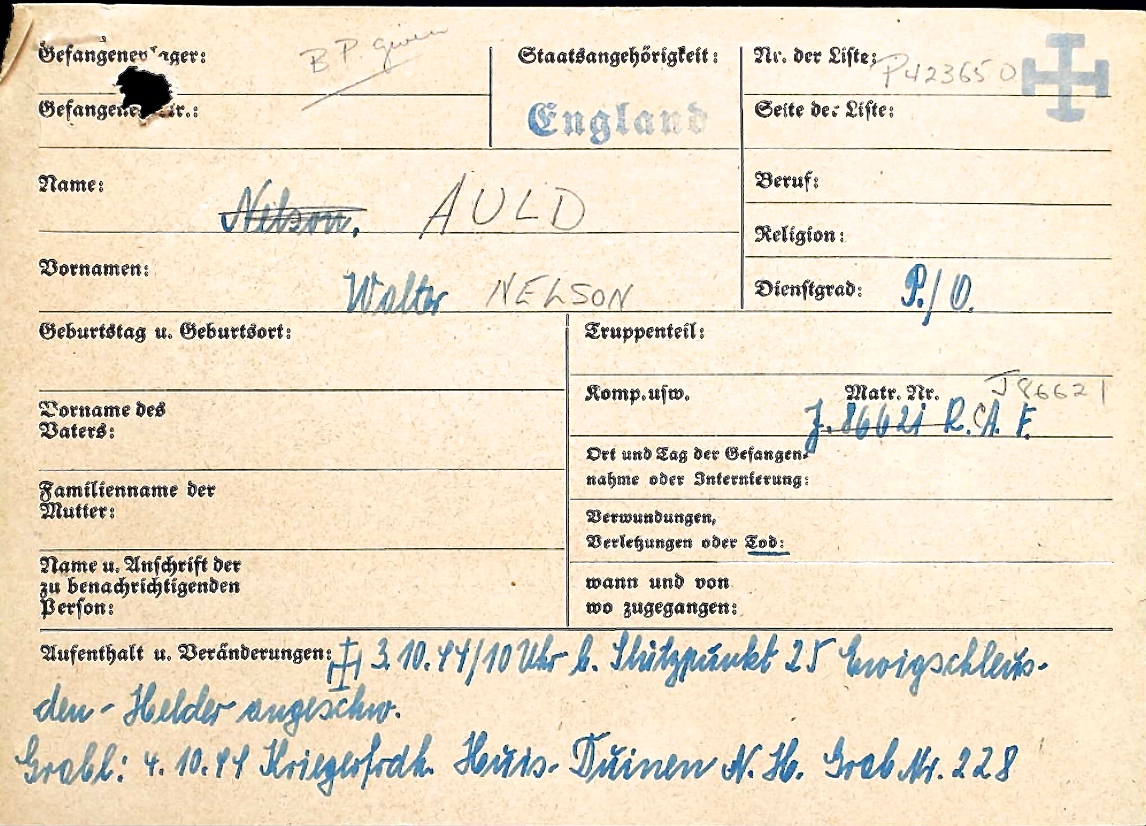 Gefangenenlager: B.P. given
Staatsangehörigkeit: England
Nr. der Liste: P423650
Gefangenennr.:
Seite der Liste:
Name: Nelson. AULD
Beruf:
Religion:
Vornamen: Walter NELSON
Dienstgrad: P./O.
Geburtstag u. Geburtsort:
Truppenteil:
Komp. usw.
Matr. Nr. J86621
J. 86621 R.C.A.F.
Vorname des
Vaters:
Ort und Tag der Gefangen-
nahme oder Internierung:
Familienname der
Mutter:
Verwundungen,
Verletzungen oder Tod:
Name u. Anschrift der
zu benachrichtigenden
Person:
wann und von
wo zugegangen:
Aufenthalt u. Veränderungen: 3.10.44/10 Uhr b. Stützpunkt 25
den-Helder angeschw.
Grabl: 4.10.44 Kriegerfrdh. Huis-Duinen N.H. Grab Nr. 228